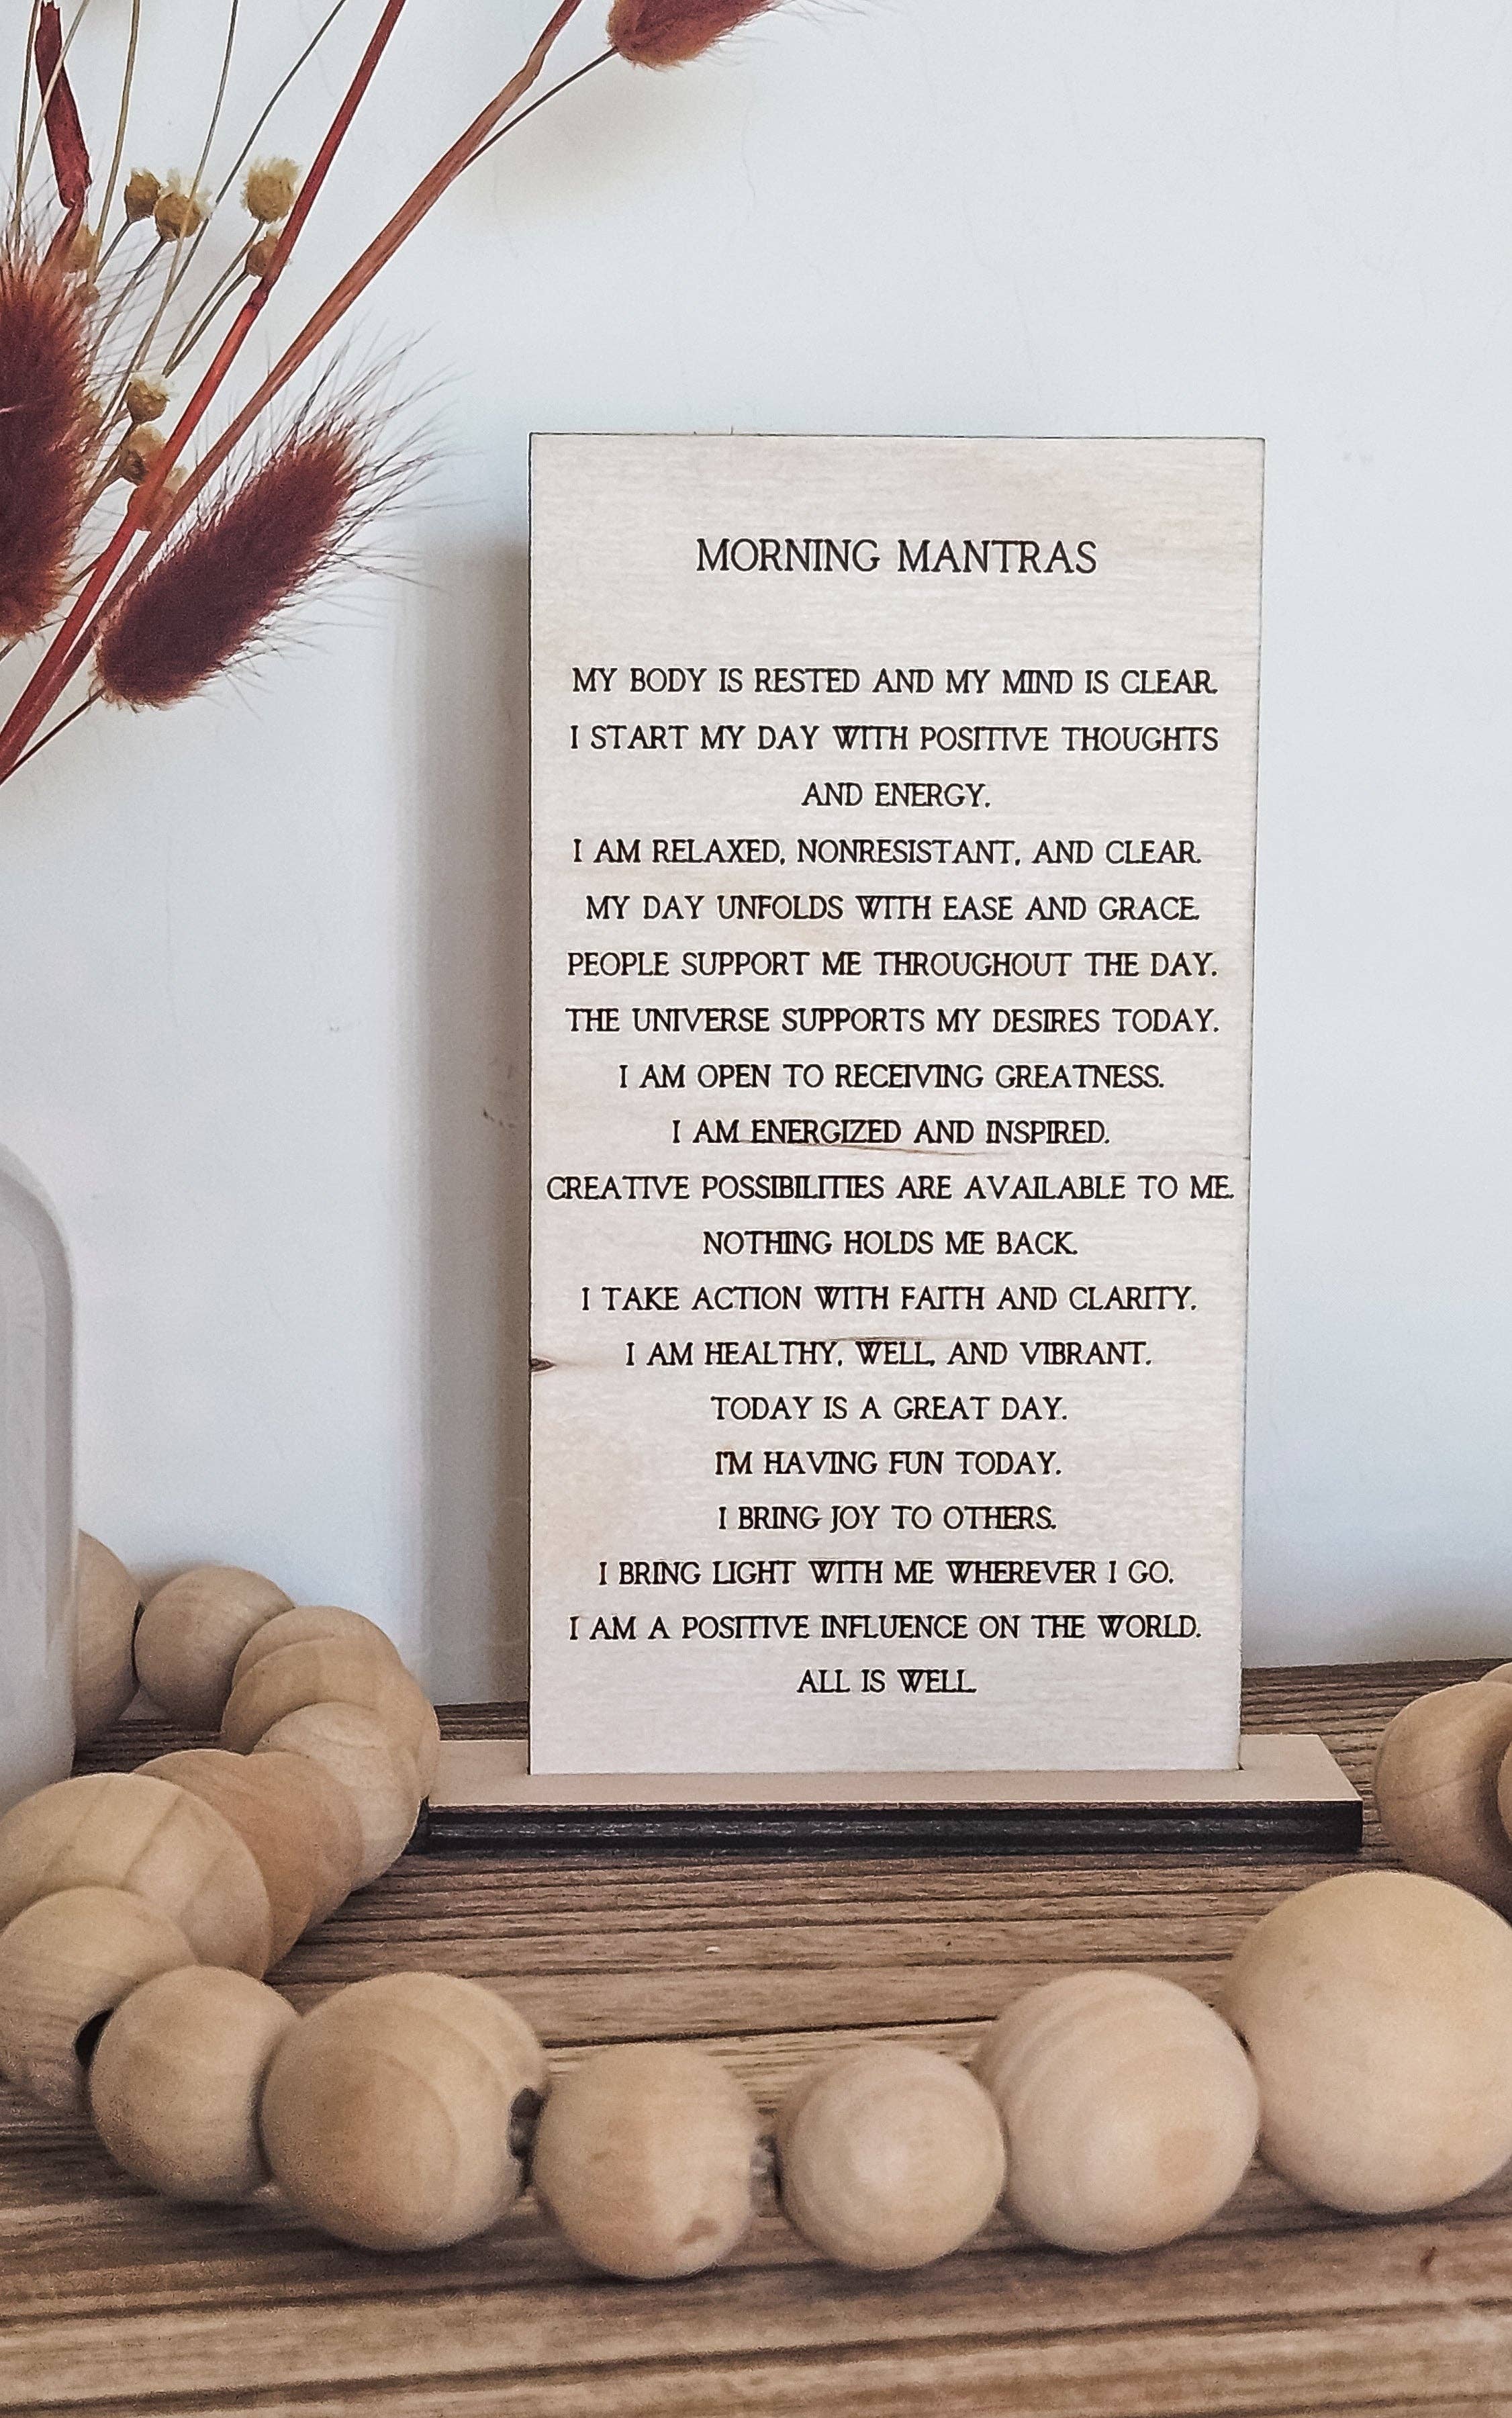 MORNING MANTRAS
MY BODY IS RESTED AND MY MIND IS CLEAR.
I START MY DAY WITH POSITIVE THOUGHTS
AND ENERGY.
I AM RELAXED, NONRESISTANT, AND CLEAR.
MY DAY UNFOLDS WITH EASE AND GRACE.
PEOPLE SUPPORT ME THROUGHOUT THE DAY.
THE UNIVERSE SUPPORTS MY DESIRES TODAY.
I AM OPEN TO RECEIVING GREATNESS.
I AM ENERGIZED AND INSPIRED.
CREATIVE POSSIBILITIES ARE AVAILABLE TO ME.
NOTHING HOLDS ME BACK.
I TAKE ACTION WITH FAITH AND CLARITY.
I AM HEALTHY, WELL, AND VIBRANT.
TODAY IS A GREAT DAY.
I'M HAVING FUN TODAY.
I BRING JOY TO OTHERS.
I BRING LIGHT WITH ME WHEREVER I GO.
I AM A POSITIVE INFLUENCE ON THE WORLD.
ALL IS WELL.